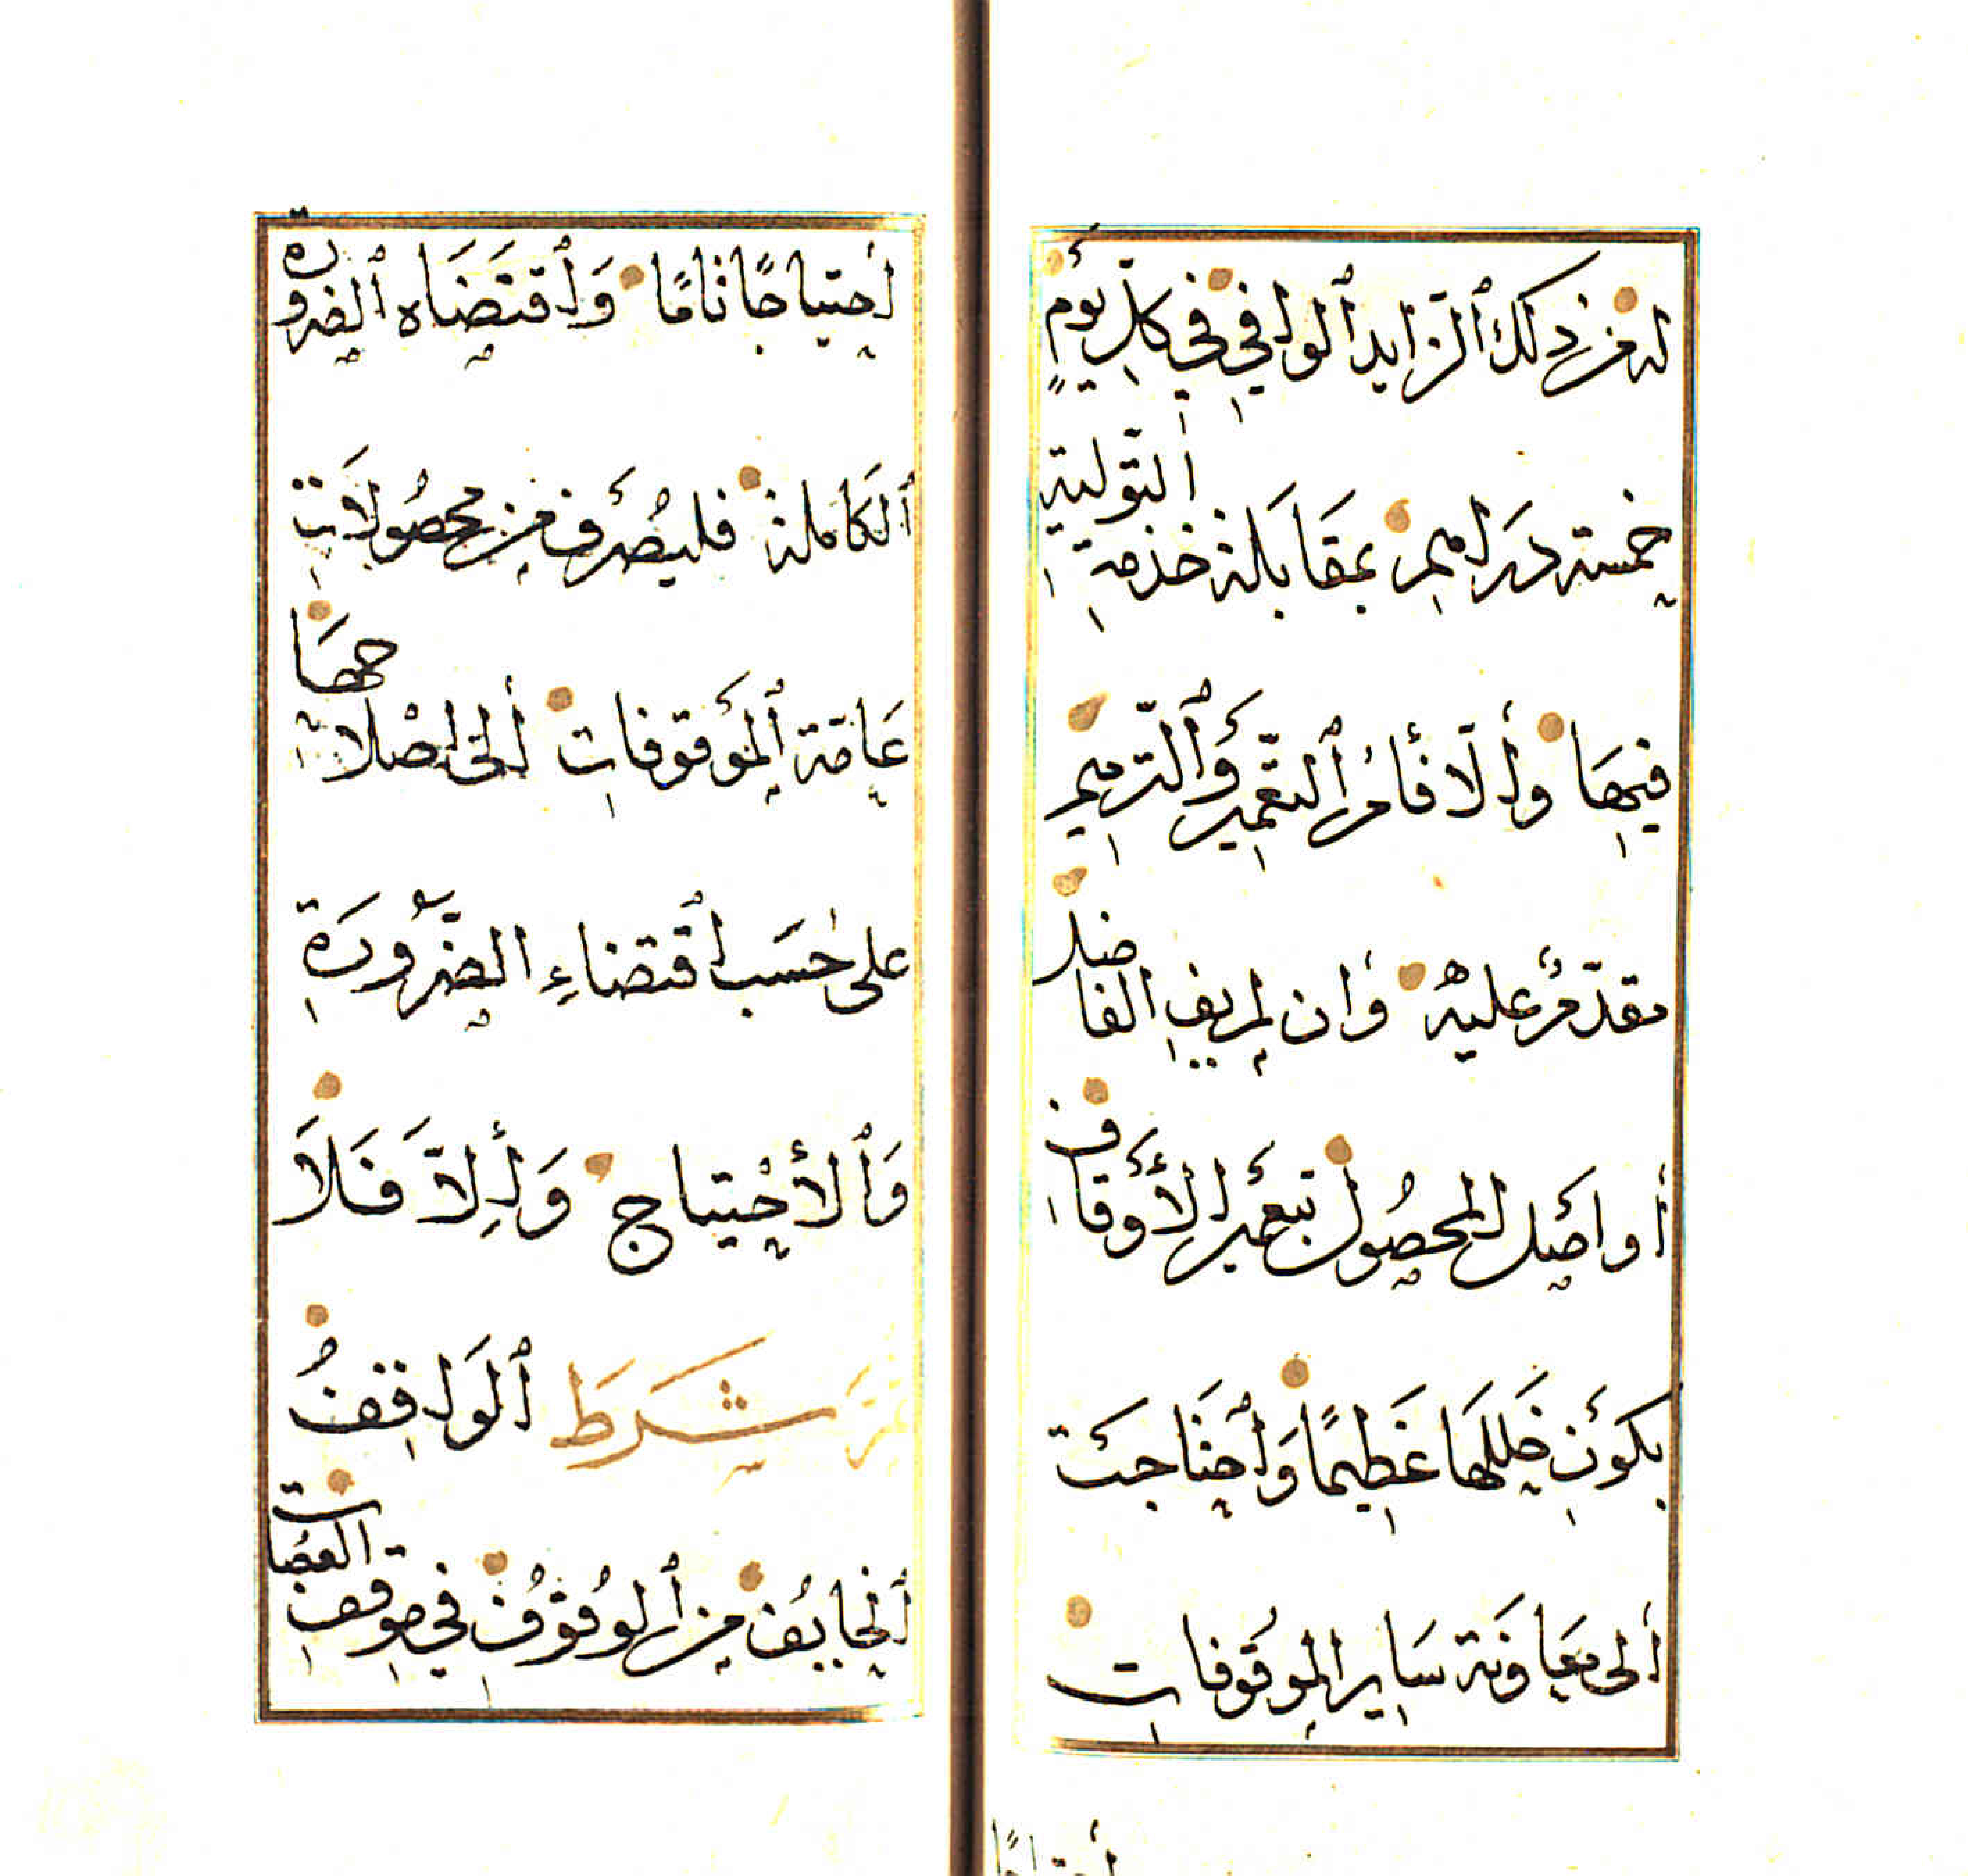 له من ذلك ٱلزّايد ٱلوافي في كلّ يومٍ
خمسة دراهم بمقابلة خدمةِ التّولية
فيها وإلّا فأمر ٱلتّعمير وٱلتّرميم
مقدّم عليه وان لم يفِ الفاضل
أو اصل المحصول بتعمير الأوقاف
بكون خللها عَظيمًا وَٱحتاجت
إلى معاونة ساير الموقوفات
احتياجًا تامًا وَٱقتضَاه ٱلضرورة
ٱلكاملة فليُصرف من محصُولات
عامّة ٱلموقوفات إلى اصلاحها
على حسَب اقتضاءِ الضّرورَةِ
وَٱلاحتياج وَإِلاَّ فَلاَ
ثمَّ شَرَطَ ٱلوَاقِفُ
ٱلخايف من ٱلوُقوف في موقف العصات
احتياجًا